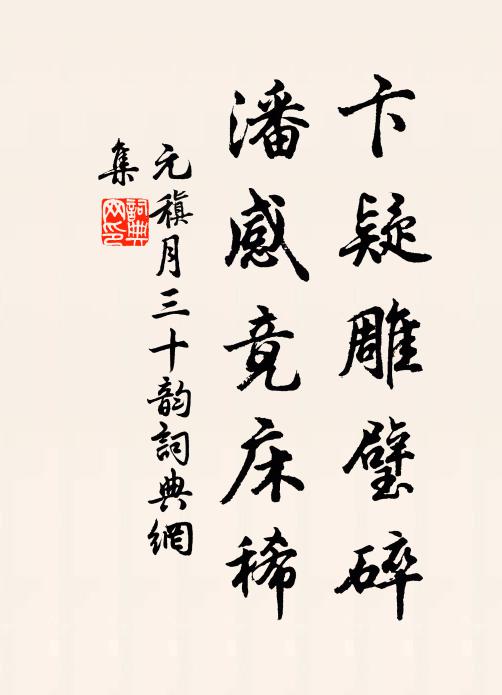 卞疑雕璧碎
潘感竟床稀
元稹月三十韵詞典網
集
詞典網印